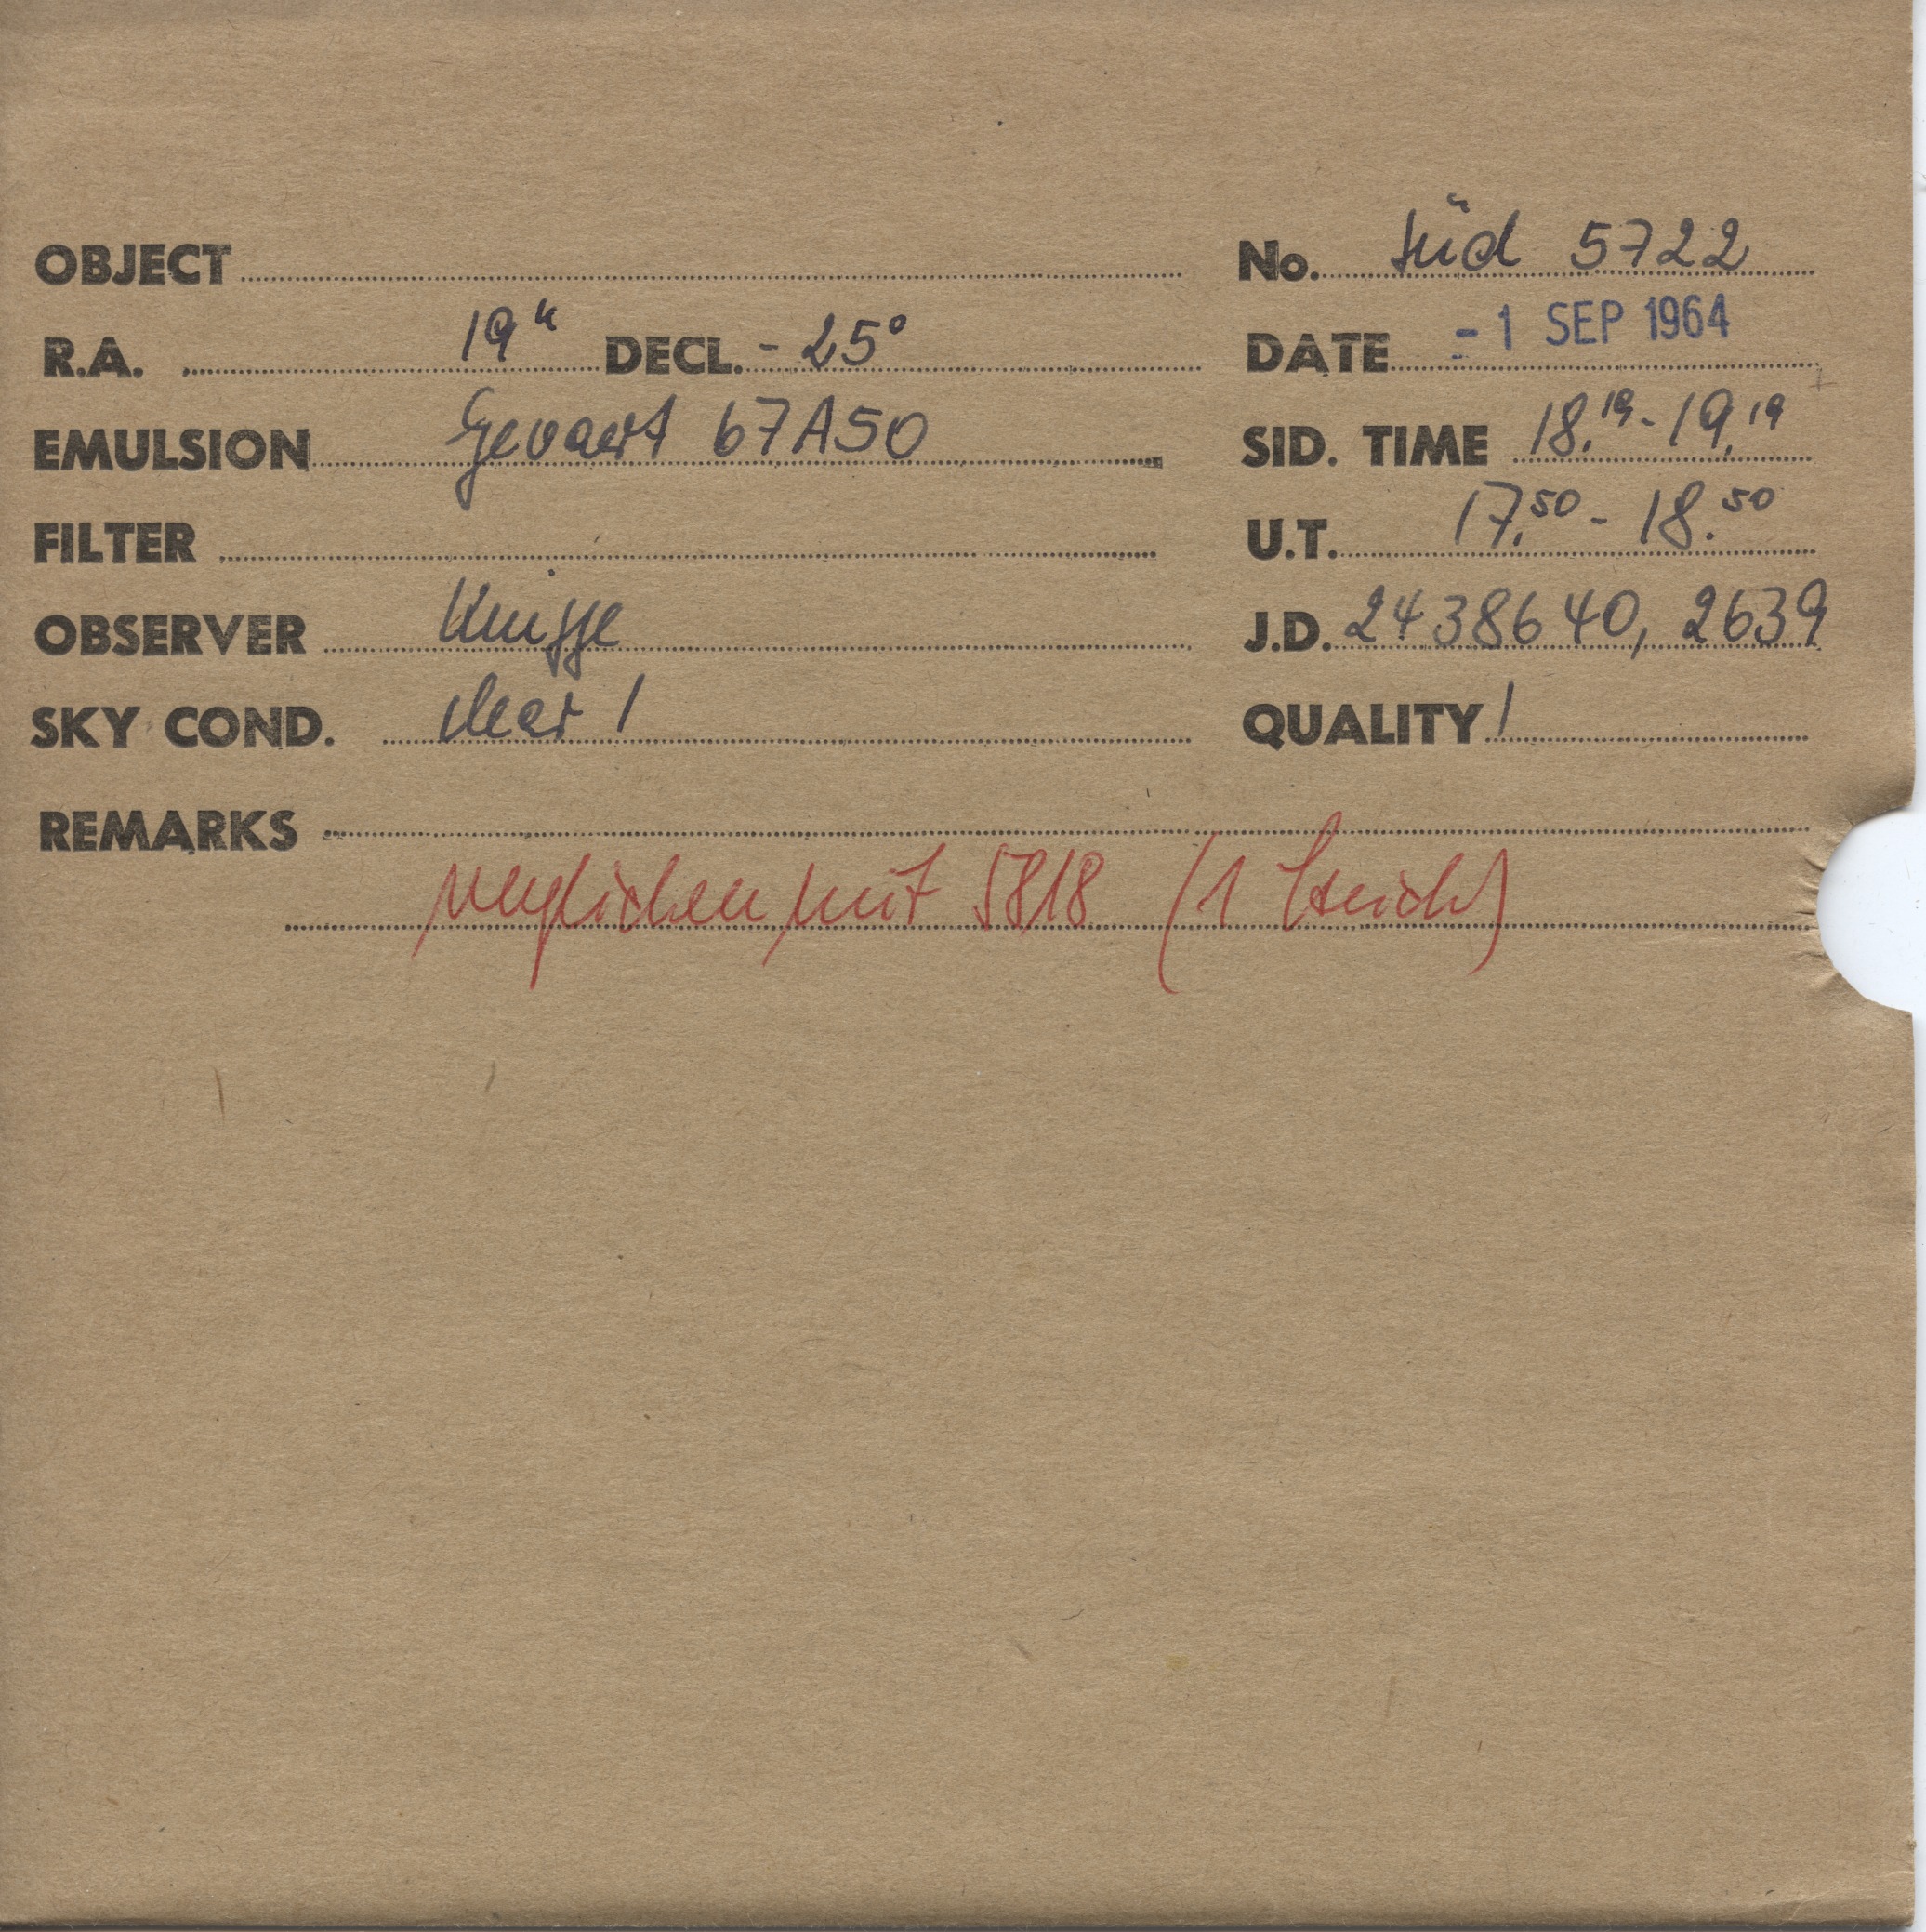 OBJECT No. Süd 5722
R.A. 19h DECL. - 25° DATE - 1 SEP 1964
EMULSION Gevaert 67A50 SID. TIME 18.19 - 19.19
FILTER U.T. 17.50 - 18.50
OBSERVER Knigge J.D. 2438640,2639
SKY COND. clear 1 QUALITY 1
REMARKS
verglichen mit 5818 (1 Strich)